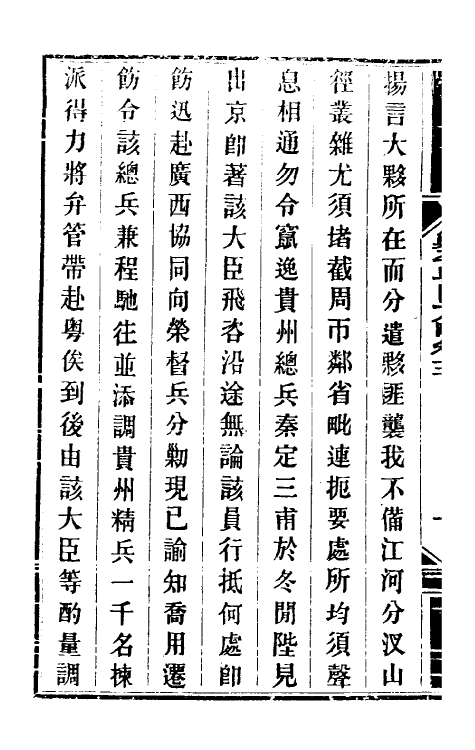 揚言大夥所在而分遣夥匪襲我不備江河分汊山
徑叢雜尤須堵截周帀鄰省毗連扼要處所均須聲
息相通勿令竄逸貴州總兵秦定三甫於冬閒陛見
出京卽著該大臣飛咨沿途無論該員行抵何處卽
飭迅赴廣西協同向榮督兵分勦現已諭知喬用遷
飭令該總兵兼程馳往並添調貴州精兵一千名揀
派得力將弁管帶赴粵俟到後由該大臣等酌量調